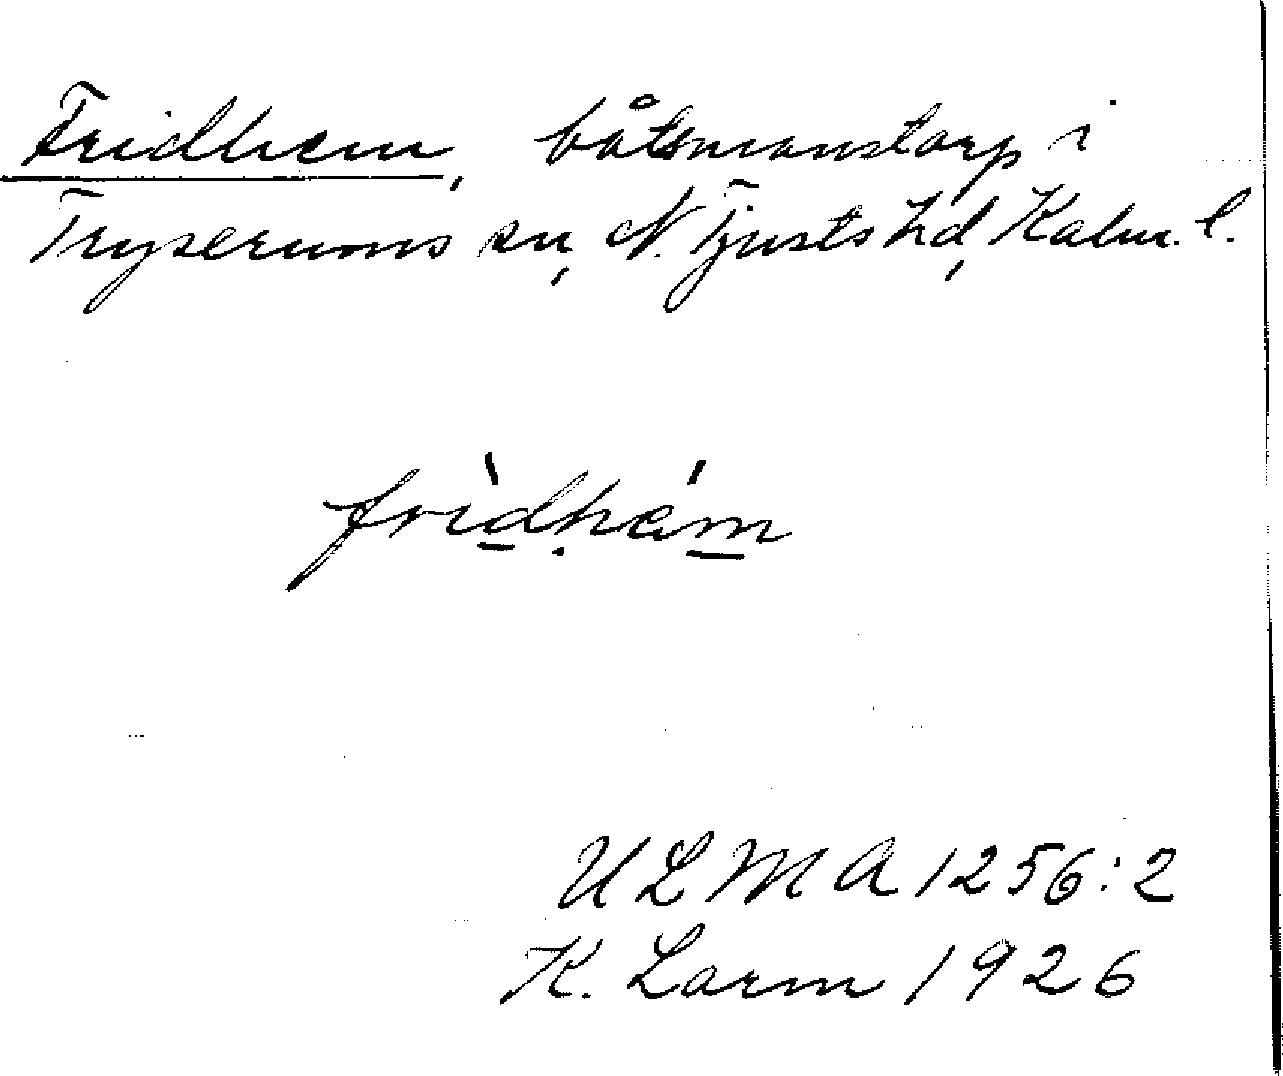 Fridhem, båtsmanstorp i
Tryserums sn, N. Tjusts hd, Kalm. l.
fridhem
ULMA 1256:2
K. Larm 1926